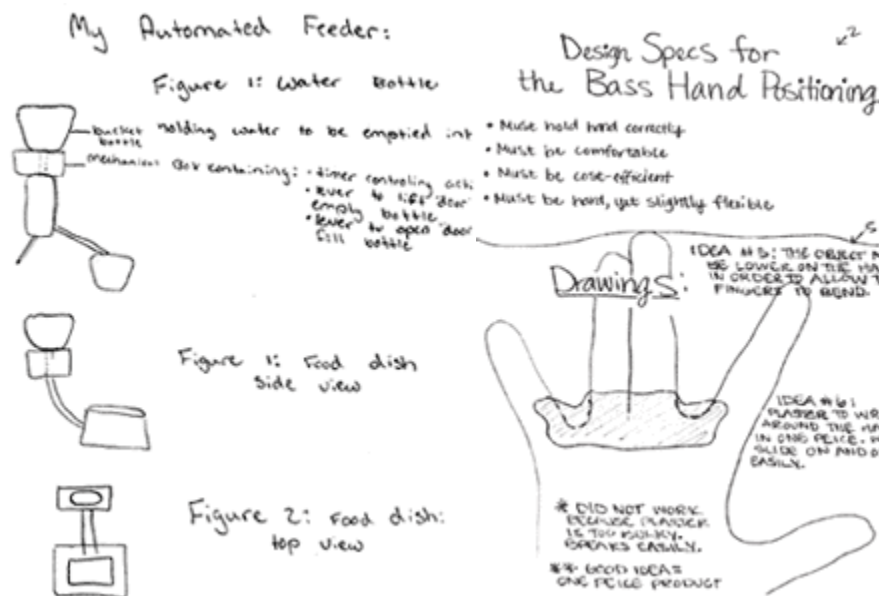 My Automated Feeder:
Figure 1: Water Bottle
bucket holding water to be emptied int
bottle
mechanical Box containing: • timer controling acti
• lever to lift door
empty bottle
• lever to open door
fill bottle
Figure 1: Food dish
side view
Figure 2: Food dish:
top view
2
Design Specs for
the Bass Hand Positioning
• Must hold hand correctly
• Must be comfortable
• Must be cost-efficient
• Must be hard, yet slightly flexible
5
Drawings:
IDEA #5: THE OBJECT M
BE LOWER ON THE HA
IN ORDER TO ALLOW T
FINGERS TO BEND.
IDEA #6:
PLASTER TO WR
AROUND THE HA
IN ONE PEICE. W
SLIDE ON AND O
EASILY.
* DID NOT WORK
BECAUSE PLASTER
IS TOO BULKY.
BREAKS EASILY.
** GOOD IDEA =
ONE PEICE PRODUCT